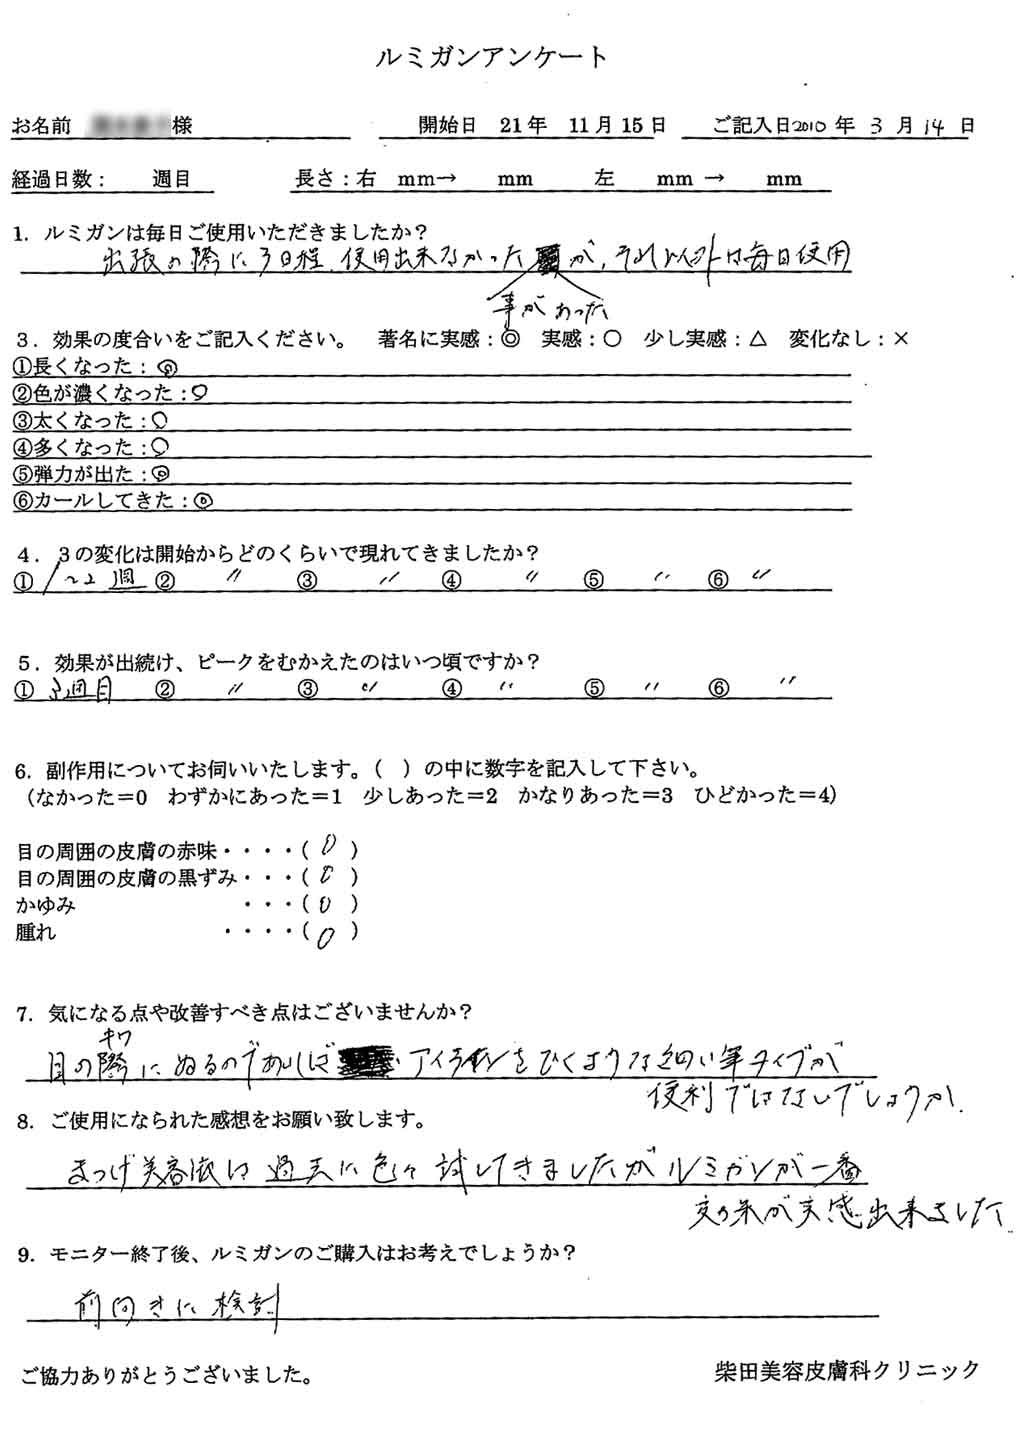 ルミガンアンケート
お名前 様 開始日 21年 11月15日 ご記入日2010年 3月14日
経過日数： 週目 長さ：右 mm→ mm 左 mm → mm
1. ルミガンは毎日ご使用いただきましたか？
出張の際に3日程、使用出来なかった が、それ以外は毎日使用
事があった
３．効果の度合いをご記入ください。 著名に実感：◎ 実感：○ 少し実感：△ 変化なし：×
①長くなった：◎
②色が濃くなった：○
③太くなった：○
④多くなった：○
⑤弾力が出た：◎
⑥カールしてきた：◎
４．３の変化は開始からどのくらいで現れてきましたか？
① 1〜2週 ② 〃 ③ 〃 ④ 〃 ⑤ 〃 ⑥ 〃
５．効果が出続け、ピークをむかえたのはいつ頃ですか？
① 3週目 ② 〃 ③ 〃 ④ 〃 ⑤ 〃 ⑥ 〃
6. 副作用についてお伺いいたします。( ) の中に数字を記入して下さい。
（なかった＝0 わずかにあった＝1 少しあった＝2 かなりあった＝3 ひどかった＝4）
目の周囲の皮膚の赤味・・・・( 0 )
目の周囲の皮膚の黒ずみ・・・( 0 )
かゆみ ・・・( 0 )
腫れ ・・・・( 0 )
7. 気になる点や改善すべき点はございませんか？
キワ
目の際にぬるのであれば アイラインをひくような細い筆タイプが
便利ではないでしょうか.
8. ご使用になられた感想をお願い致します。
まつげ美容液は過去に色々試してきましたがルミガンが一番
効果が実感出来ました
9. モニター終了後、ルミガンのご購入はお考えでしょうか？
前向きに検討
ご協力ありがとうございました。 柴田美容皮膚科クリニック